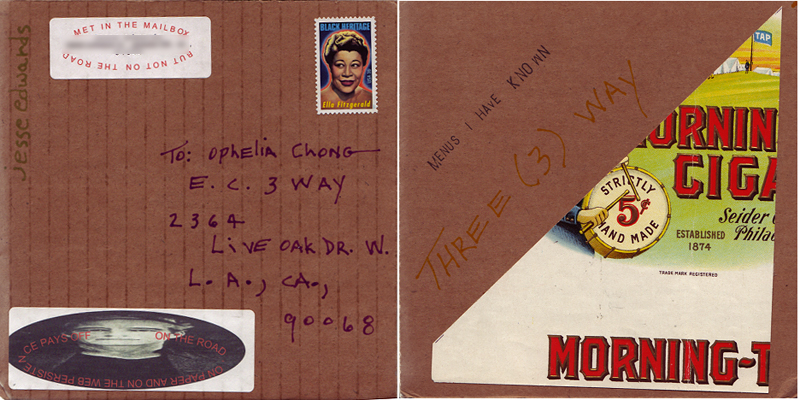 Jesse edwards
MET IN THE MAILBOX
BUT NOT ON THE ROAD
BLACK HERITAGE
Ella Fitzgerald
TO: OPHELIA CHONG
E. C. 3 WAY
2364
LIVE OAK DR. W.
L. A., CA.,
90068
CE PAYS OFF ON THE ROAD
ON PAPER AND ON THE WEB PERSISTEN
MENUS I HAVE KNOWN
THREE (3) WAY
TAP
MORNIN
CIGA
STRICTLY
5¢
HAND MADE
Seider
ESTABLISHED
1874
Phila
TRADE MARK REGISTERED
MORNING-T